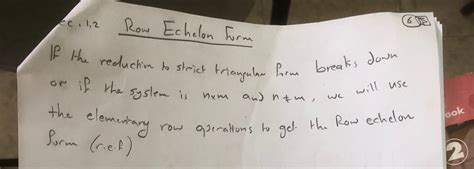 ec. 1.2 Row Echelon Form
6
If the reduction to strict triangular form breaks down
or if the system is nxm and n≠m, we will use
the elementary row operations to get the Row echelon
form (r.e.f)
ook
2